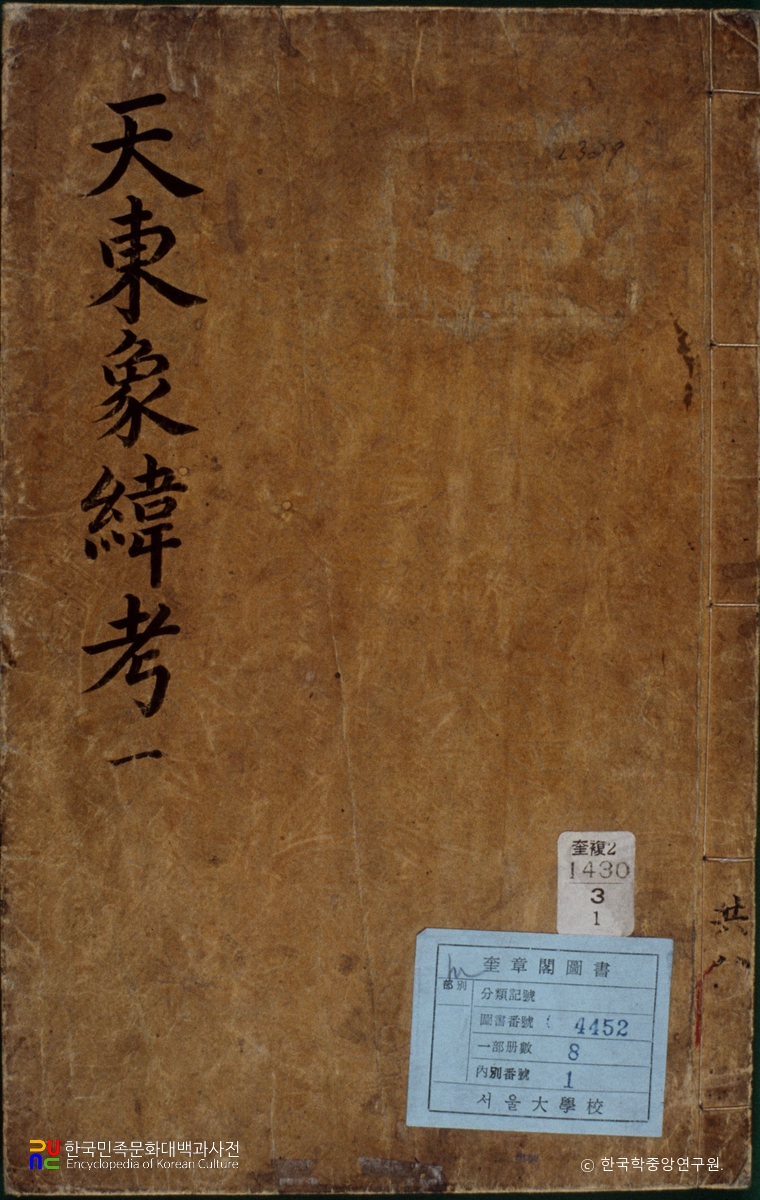 天東象緯考 一
2389
奎複2
1430
3
1
奎章閣圖書
部別
分類記號
圖書番號 4452
一部册數 8
內別番號 1
서울大學校
洪
八
한국민족문화대백과사전
Encyclopedia of Korean Culture
© 한국학중앙연구원.